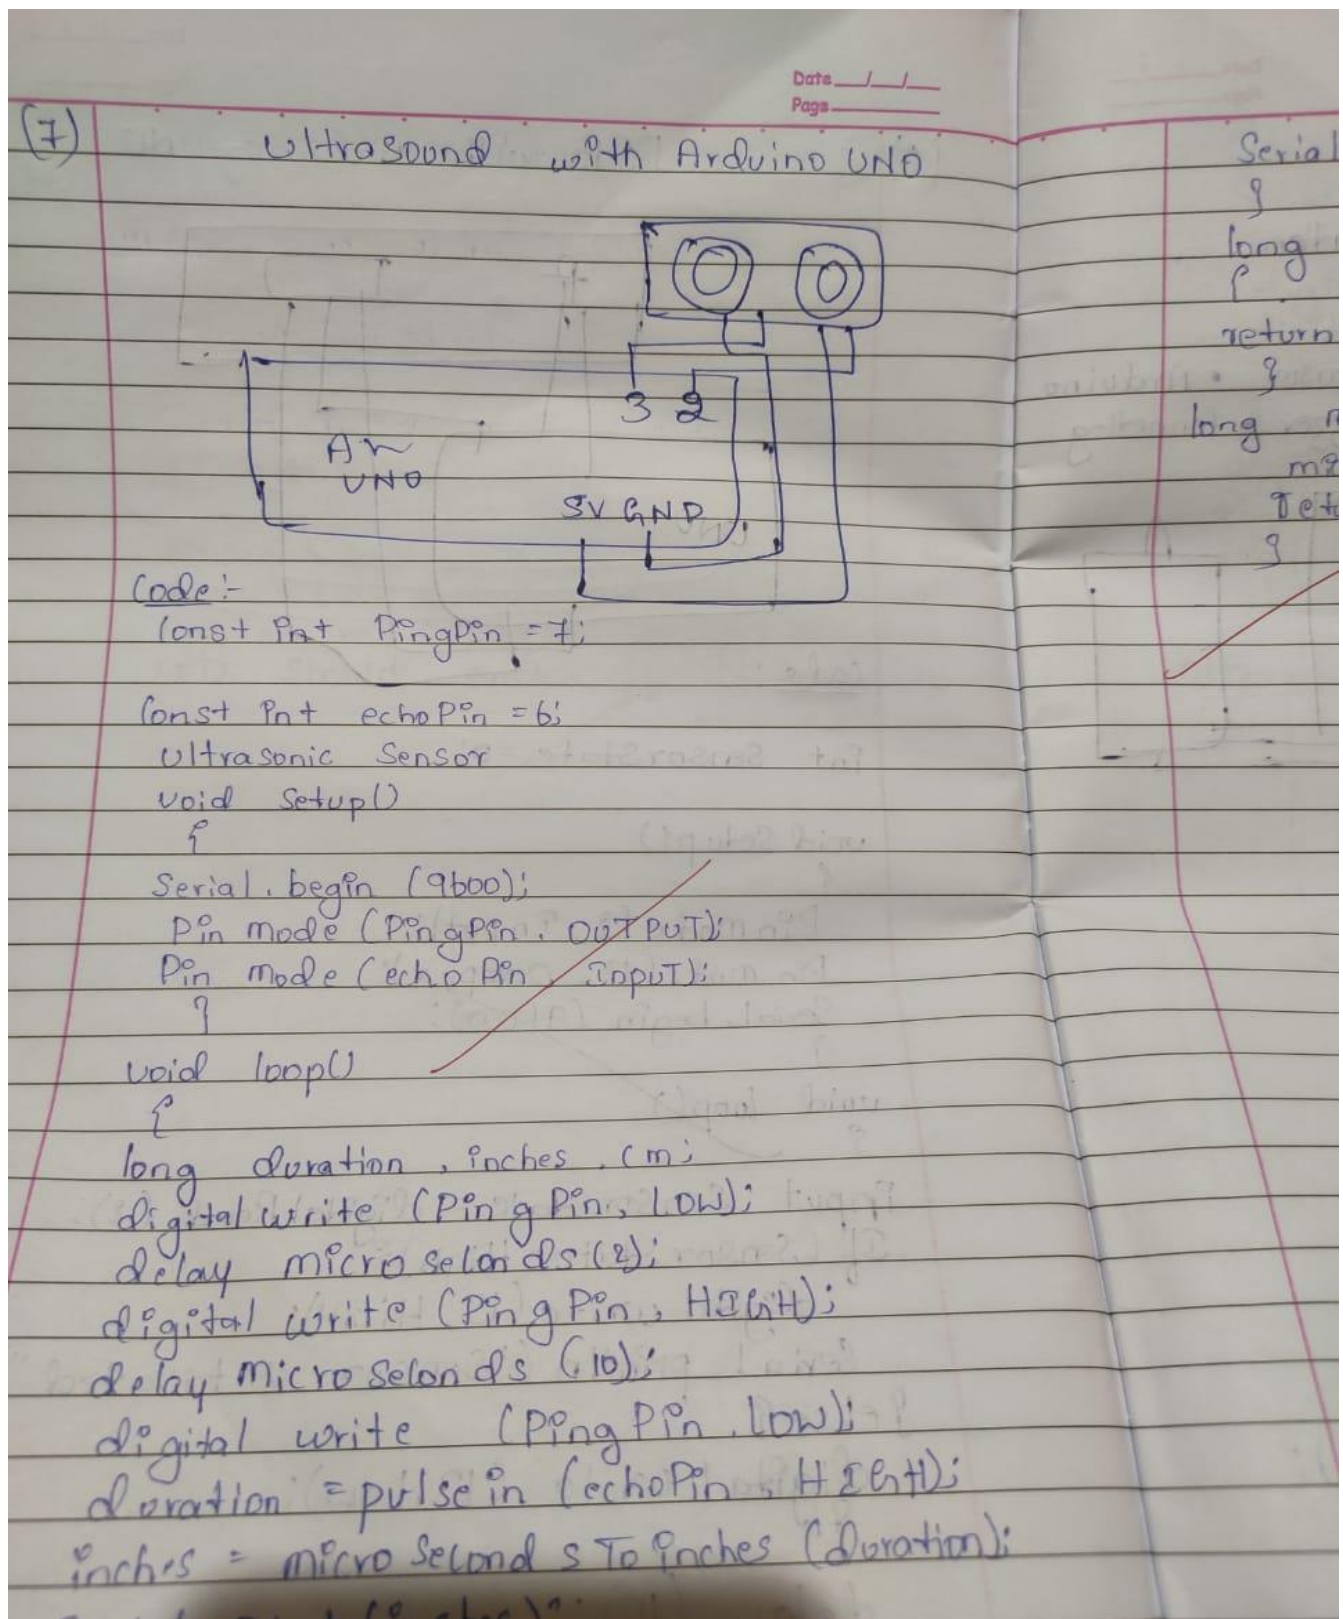 Date
Page
(7)
Ultrasound with Arduino UNO
3 2
Ar
UNO
5V GND
Code:-
Const int PingPin = 7;
Const int echoPin = 6;
Ultrasonic Sensor
void Setup()
{
Serial. begin (9600);
Pin mode (PingPin, OUTPUT);
Pin mode (echo Pin, INPUT);
}
void loop()
{
long duration, inches, cm;
digital write (Ping Pin, LOW);
delay micro seconds (2);
digital write (Ping Pin, HIGH);
delay micro seconds (10);
digital write (Ping Pin, LOW);
duration = pulse in (echoPin, HIGH);
inches = micro second s To inches (duration);
Serial
}
long
{
return
}
long
}